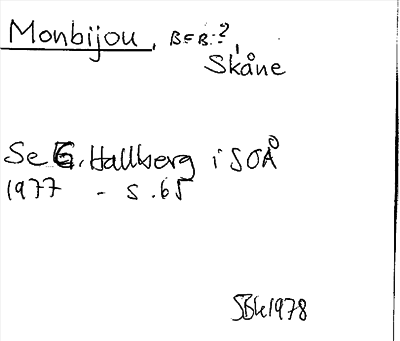 Monbijou, BEB.?,
Skåne
Se G. Hallberg i SOÅ
1977 - s. 65
SBH 1978